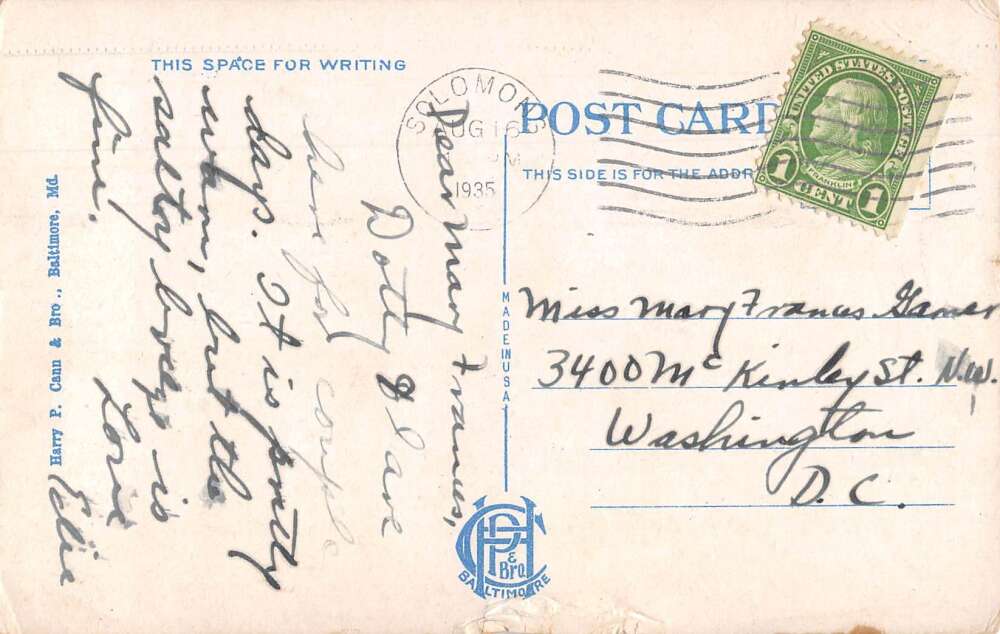 THIS SPACE FOR WRITING
SOLOMONS
AUG 16
PM
1935
POST CARD
THIS SIDE IS FOR THE ADDR
UNITED STATES POSTAGE
FRANKLIN
1 CENT 1
Dear Mary Frances,
Dotty & I are
here for couple
days. It is pretty
warm, but the
salty breeze is
fine.
Love
Elsie
Miss Mary Frances
3400 Mc Kinley St. N.W.
Washington
D. C.
MADE IN USA
Harry P. Cann & Bro., Baltimore, Md.
HPC
& Bro.
BALTIMORE